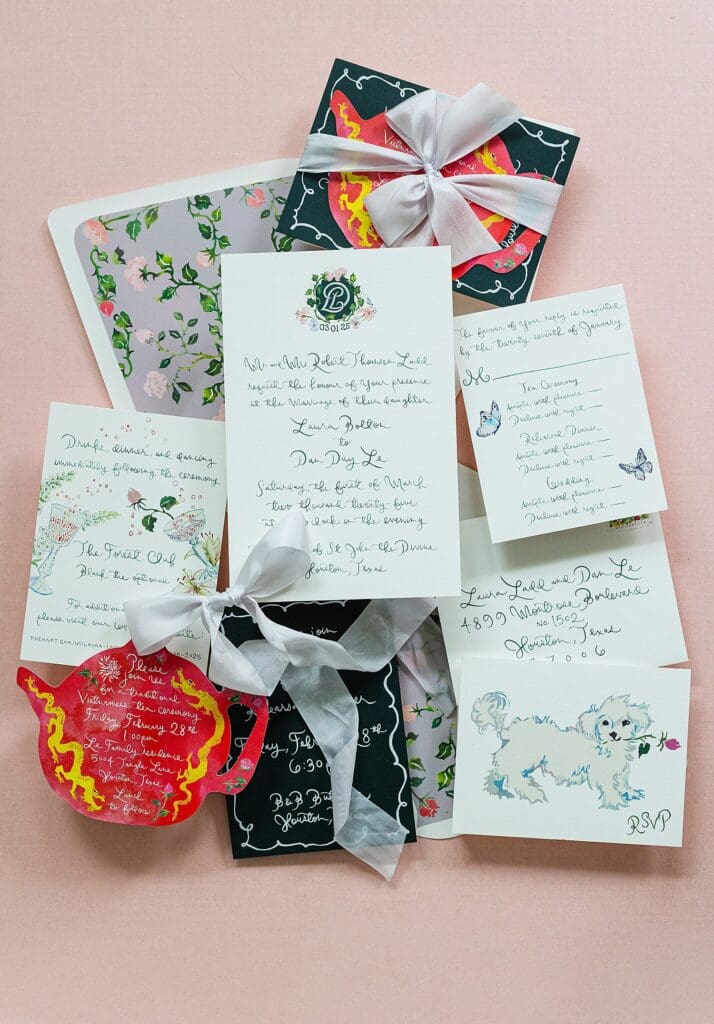 Vietnamese
L
03 01 25
Mr and Mrs Robert Thomson Ladd
request the honour of your presence
at the Marriage of their daughter
Laura Bolton
to
Dan Duy Le
Saturday, the first of March
two thousand twenty five
o'clock in the evening
of St John the Divine
Houston, Texas
The favour of your reply is requested
by the twenty seventh of January
M
Tea Ceremony
Accepts with pleasure
Declines with regret
Rehearsal Dinner
Accepts with pleasure
Declines with regret
Wedding
Accepts with pleasure
Declines with regret
Drinks, dinner and dancing
immediately following the ceremony
The Forest Club
Black tie optional
For additional
please visit our site:
THEKNOT.COM/US/LAURA-
-2025
Laura Ladd and Dan Le
4899 Montrose Boulevard
No 1502
Houston, Texas
77006
Please
join us
for a traditional
Vietnamese tea ceremony
Friday, February 28th
1:00pm
Le Family residence
5004 Tangle Lane
Houston, Texas
Lunch
to follow
join
Friday, Feb 28th
6:30
B&B But
Houston,
RSVP